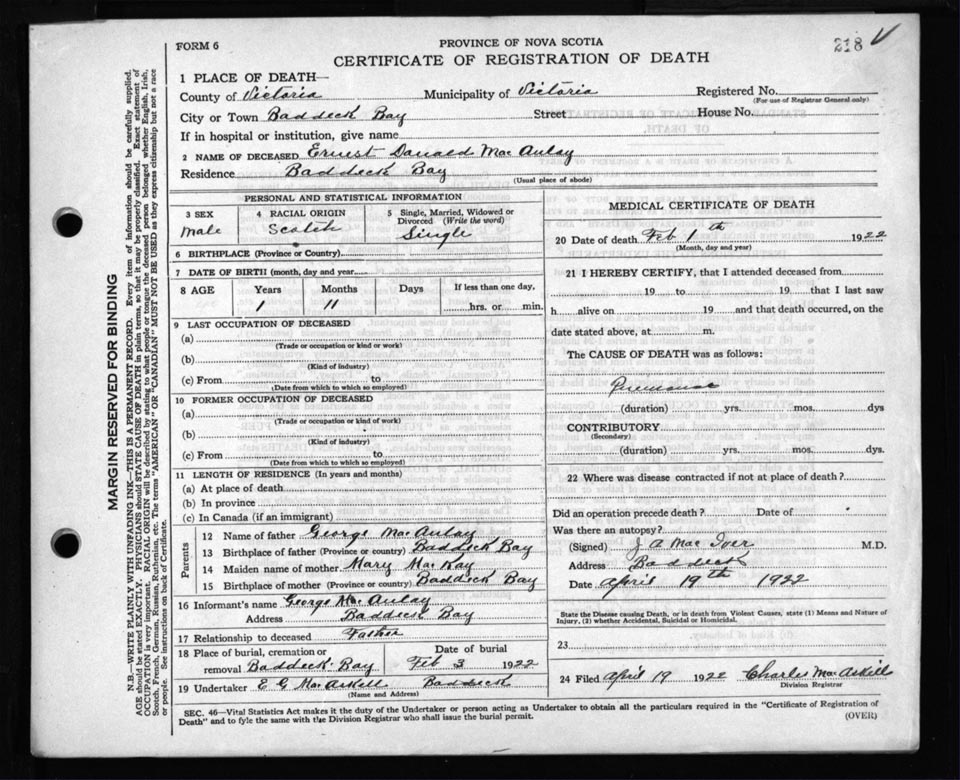 FORM 6
218 V
PROVINCE OF NOVA SCOTIA
CERTIFICATE OF REGISTRATION OF DEATH
1 PLACE OF DEATH—
County of Victoria Municipality of Victoria Registered No.
(For use of Registrar General only)
City or Town Baddeck Bay Street House No.
If in hospital or institution, give name
2 NAME OF DECEASED Ernest Donald Mac Aulay
Residence Baddeck Bay
(Usual place of abode)
PERSONAL AND STATISTICAL INFORMATION
3 SEX 4 RACIAL ORIGIN 5 Single, Married, Widowed or Divorced (Write the word)
Male Scotch Single
6 BIRTHPLACE (Province or Country)
7 DATE OF BIRTH (month, day and year)
8 AGE Years Months Days If less than one day,
1 11 hrs. or min.
9 LAST OCCUPATION OF DECEASED
(a)
(Trade or occupation or kind or work)
(b)
(Kind of industry)
(c) From to
(Date from which to which so employed)
10 FORMER OCCUPATION OF DECEASED
(a)
(Trade or occupation or kind of work)
(b)
(Kind of industry)
(c) From to
(Date from which to which so employed)
11 LENGTH OF RESIDENCE (In years and months)
(a) At place of death
(b) In province
(c) In Canada (if an immigrant)
Parents
12 Name of father George Mac Aulay
13 Birthplace of father (Province or country) Baddeck Bay
14 Maiden name of mother Mary Mac Kay
15 Birthplace of mother (Province or country) Baddeck Bay
16 Informant's name George Mac Aulay
Address Baddeck Bay
17 Relationship to deceased Father
18 Place of burial, cremation or Date of burial
removal Baddeck Bay Feb 3 1922
19 Undertaker E G MacAskill Baddeck
(Name and Address)
MEDICAL CERTIFICATE OF DEATH
20 Date of death Feb 1th 1922
(Month, day and year)
21 I HEREBY CERTIFY, that I attended deceased from
19 to 19 that I last saw
h alive on 19 and that death occurred, on the
date stated above, at m.
The CAUSE OF DEATH was as follows:
Pneumonia
(duration) yrs. mos. dys
CONTRIBUTORY
(Secondary)
(duration) yrs. mos. dys.
22 Where was disease contracted if not at place of death?
Did an operation precede death? Date of
Was there an autopsy?
(Signed) J A Mac Iver M.D.
Address Baddeck
Date April 19th 1922
State the Disease causing Death, or in death from Violent Causes, state (1) Means and Nature of
Injury, (2) whether Accidental, Suicidal or Homicidal.
23
24 Filed April 19 1922 Charles MacAskill
Division Registrar
SEC. 46—Vital Statistics Act makes it the duty of the Undertaker or person acting as Undertaker to obtain all the particulars required in the "Certificate of Registration of
Death" and to fyle the same with the Division Registrar who shall issue the burial permit.
(OVER)
MARGIN RESERVED FOR BINDING
N.B.—WRITE PLAINLY WITH UNFADING INK—THIS IS A PERMANENT RECORD. Every item of information should be carefully supplied.
AGE should be stated EXACTLY. PHYSICIANS should STATE CAUSE OF DEATH in plain terms, so that it may be properly classified. Exact statement of
OCCUPATION is very important. RACIAL ORIGIN will be described by stating to what people or tongue the deceased person belonged whether English, Irish,
Scotch, French, German, Russian, Ruthenian, etc. The terms "AMERICAN" OR "CANADIAN" MUST NOT BE USED as they express citizenship but not a race
or people. See instructions on back of Certificate.